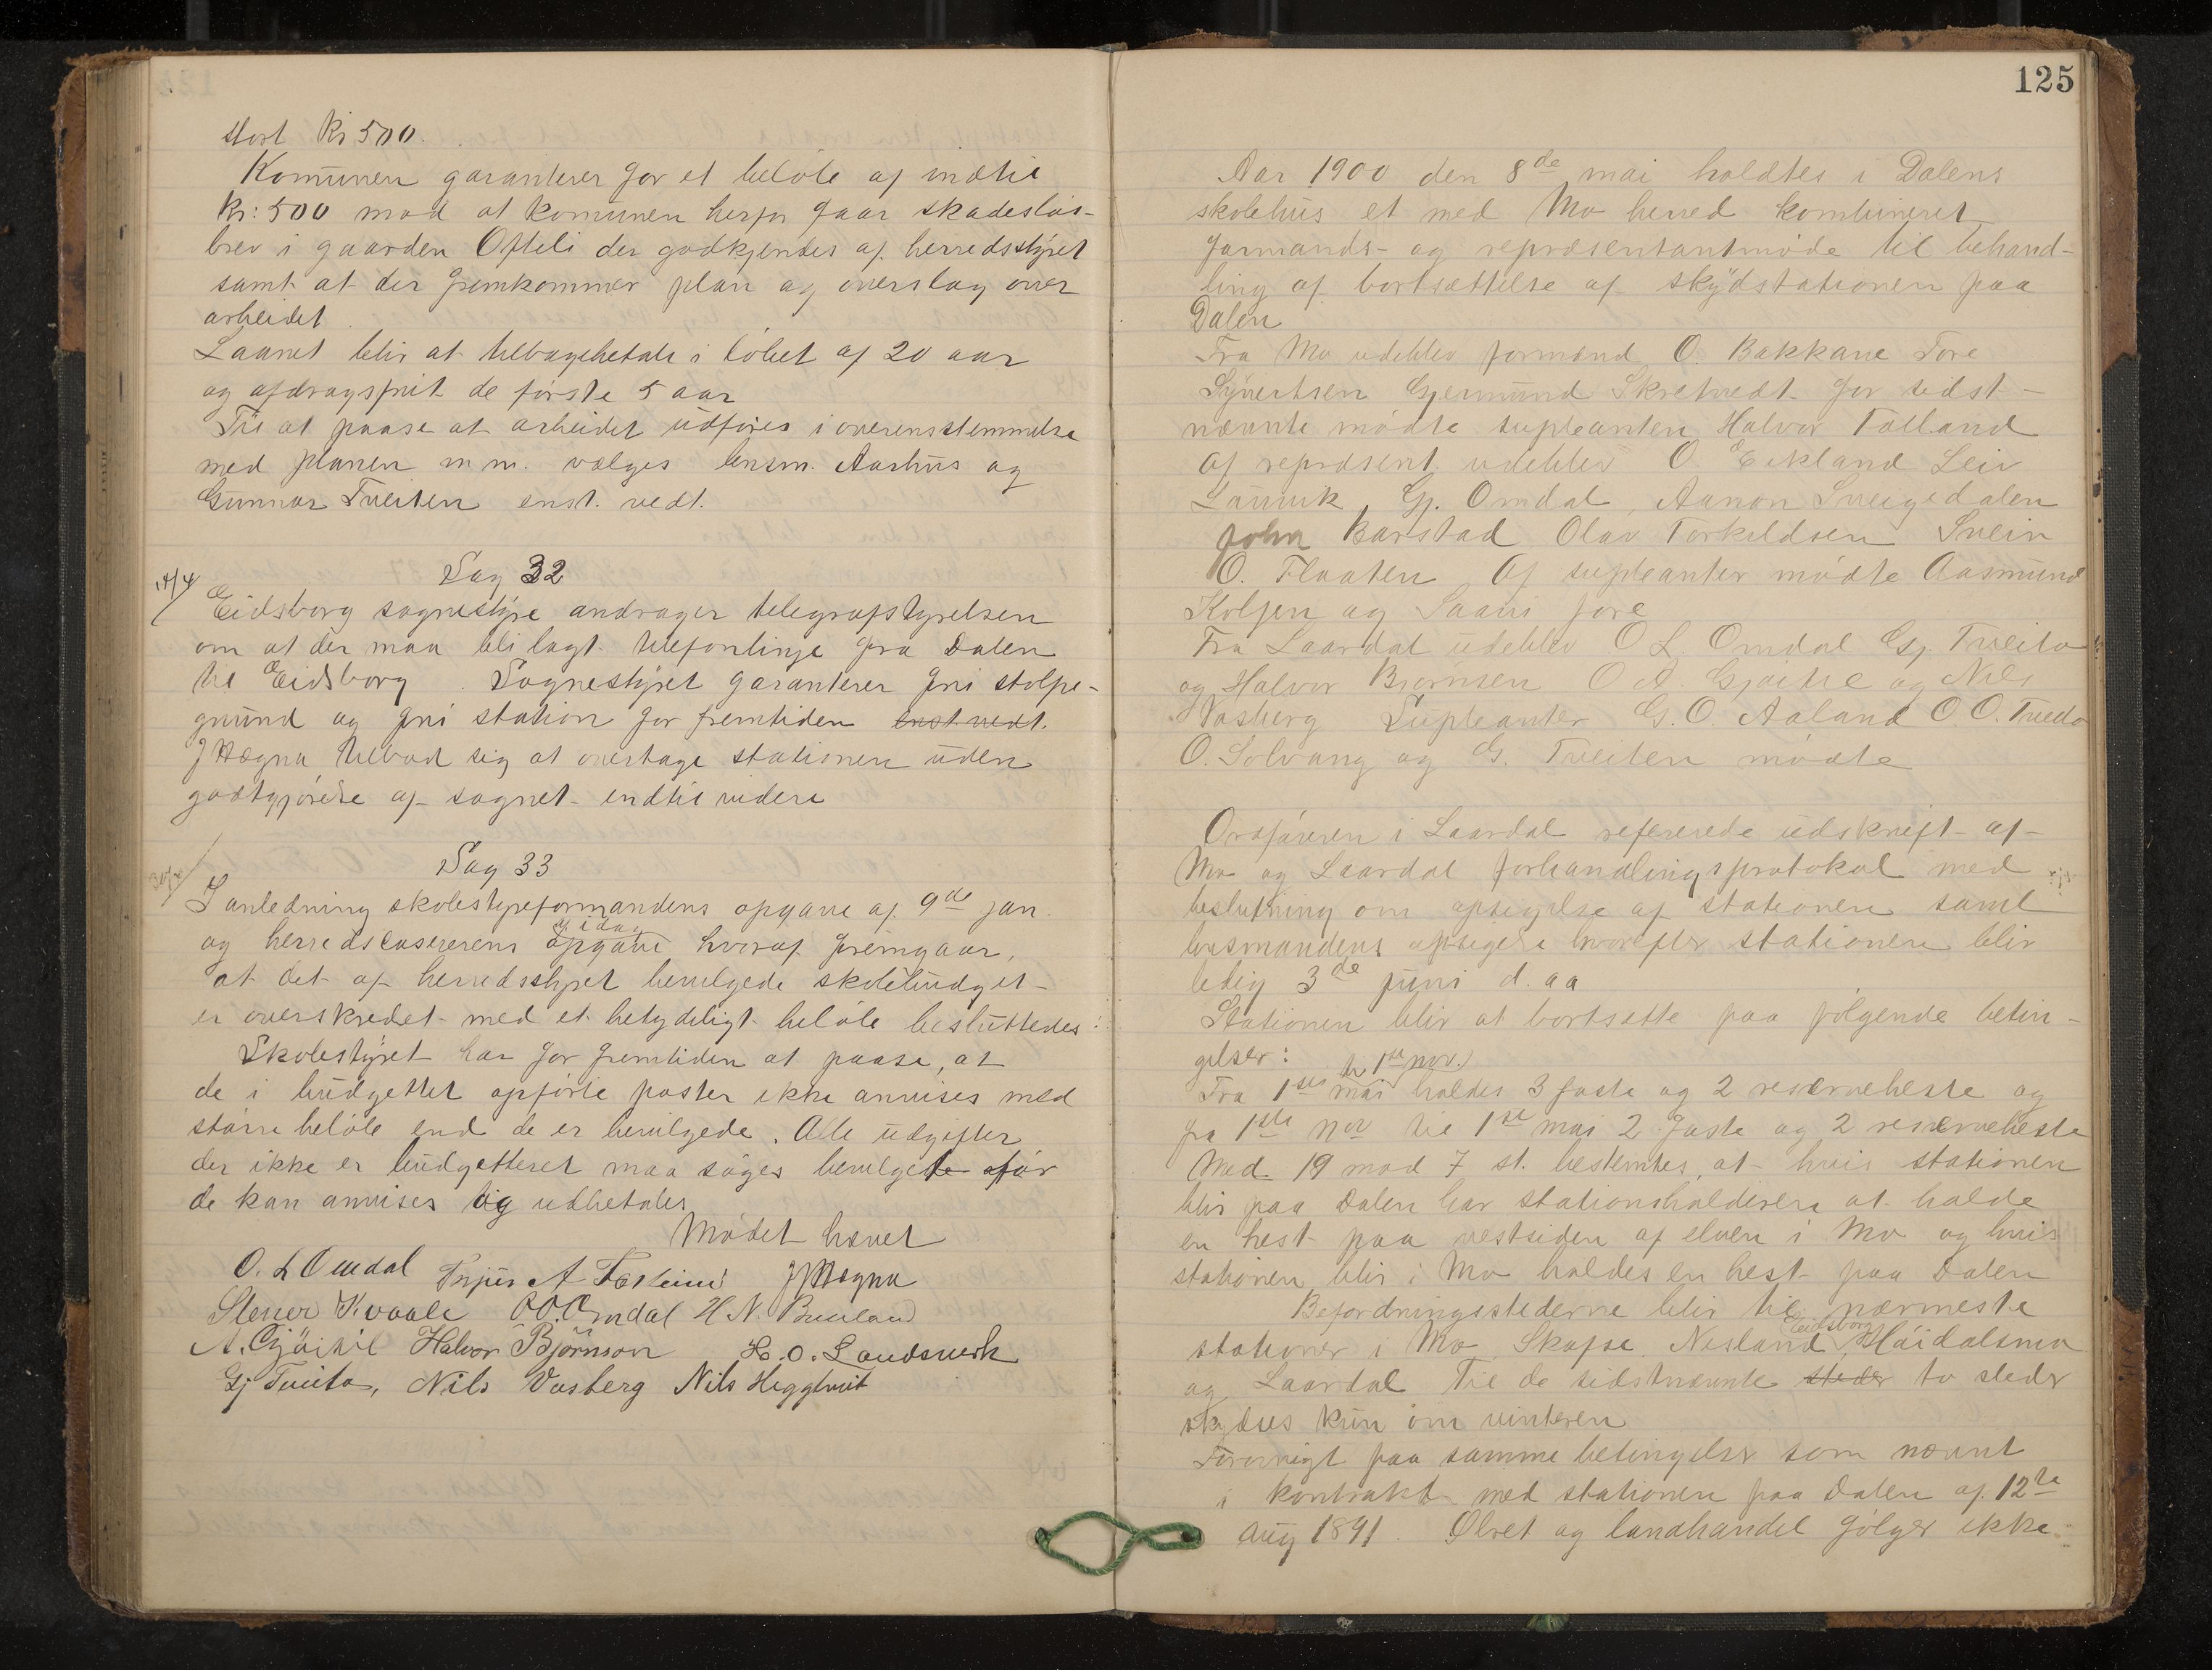 stort Kr 500.
Komunen garanterer for et beløb af indtil
Kr: 500 mod at komunen herfor faar skadesløs-
brev i gaarden Ofteli der godkjendes af herredsstyret
samt at der fremkommer plan og overslag over
arbeidet
Laanet blir at tilbagebetale i løbet af 20 aar
og afdragsfrit de første 5 aar
Til at paase at arbeidet udføres i overensstemmelse
med planen m m. vælges lensm. Aarhus og
Gunnar Tveiten enst. vedt.
Sag 32
Eidsborg sognestyre andrager telegrafstyrelsen
om at der maa bli lagt telefonlinje fra Dalen
til Eidsborg. Sognestyret garanterer fri stolpe-
grund og fri station for fremtiden enst vedt.
J Mægna tilbød sig at overtage stationen uden
godtgjørelse af sognet indtil videre
Sag 33
I anledning skolestyreformandens opgave af 9de jan
af idag
og herredskasererens opgave hvoraf fremgaar,
at det af herredsstyret bevilgede skolebudget
er overskredet med et betydeligt beløb besluttedes:
Skolestyret har for fremtiden at paase, at
de i budgettet opførte poster ikke anvises med
større beløb end de er bevilgede. Alle udgifter
der ikke er budgetteret maa søges bevilgede før
de kan anvises og udbetales
Mødet hævet
O. L Omdal A J Mægna
Stener Kvaale O. O. Omdal H. N. Bueland
A. Gjøitil Halvor Bjørnson H. O. Landsverk
Gj Tveito, Nils Vasberg Nils Heggtveit
125
Aar 1900 den 8de mai holdtes i Dalens
skolehus et med Mo herred kombineret
formands- og repræsentantmøde til behand-
ling af bortsættelse af skydstationen paa
Dalen
Fra Mo udeblev formænd O. Bakkane Tore
Syvertsen Gjermund Skretvedt for sidst-
nævnte mødte supleanten Halvor Tolland
Af repræsent. udeblev O. Eikland Leiv
Lauvik, Gj. Omdal, Aanon Sveigedalen
John Barstad Olav Torkildsen Svein
O. Flaaten Af supleanter mødte Aasmund
Kolsen og Saavi fore
Fra Laardal udeblev O L. Omdal Gj. Tveito
og Halvor Bjørnsen O A. Gjøitil og Nils
Vasberg Supleanter G. O. Aaland O. O. Tvedo
O. Solvang og G. Tveiten mødte
Ordføreren i Laardal refererede udskrift af
Mo og Laardal forhandlingsprotokol med
beslutning om opsigelse af stationen samt
lensmandens opsigelse hvorefter stationen blir
ledig 3de juni d. aa
Stationen blir at bortsætte paa følgende betin-
gelser:
til 1ste nov.
Fra 1ste mai holdes 3 faste og 2 reserveheste og
fra 1ste nov til 1ste mai 2 faste og 2 reserveheste
Med 19 mod 7 st. bestemtes, at hvis stationen
blir paa Dalen har stationsholderen at holde
en hest paa vestsiden af elven i Mo og hvis
stationen blir i Mo holdes en hest paa Dalen
Befordringsstederne blir til nærmeste
Eidsborg
stationer i Mo, Skafse, Nesland, Høidalsmo
og Laardal Til de sidstnævnte steder to steder
skydses kun om vinteren
Forøvrigt paa samme betingelser som nævnt
i kontrakt med stationen paa Dalen af 12te
aug 1891. Ølret og landhandel følger ikke